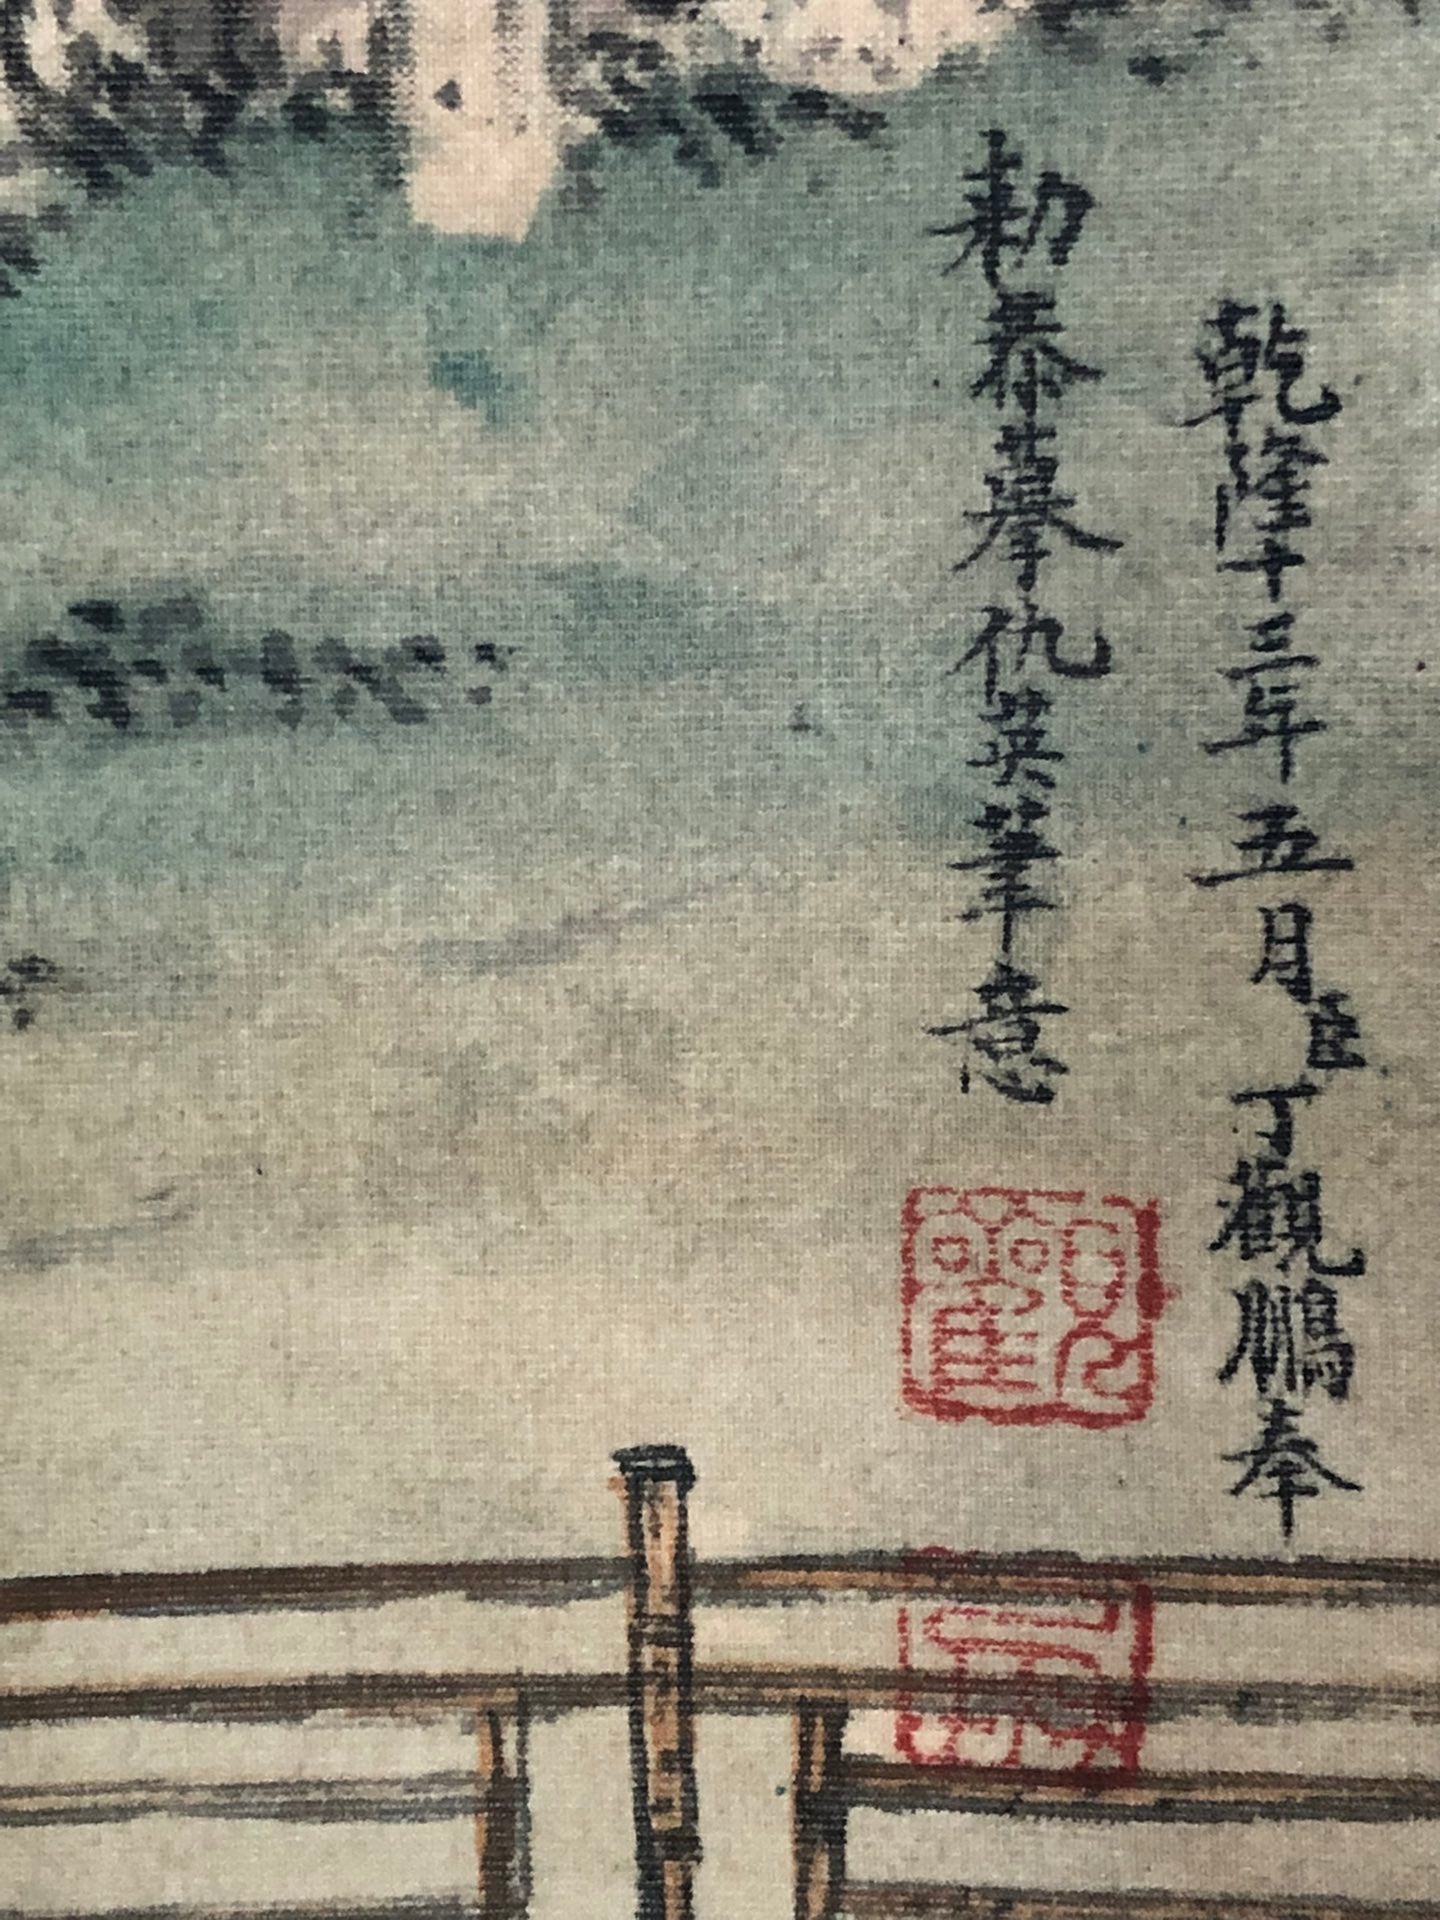 乾隆十三年五月臣丁觀鵬奉
勅恭摹仇英筆意